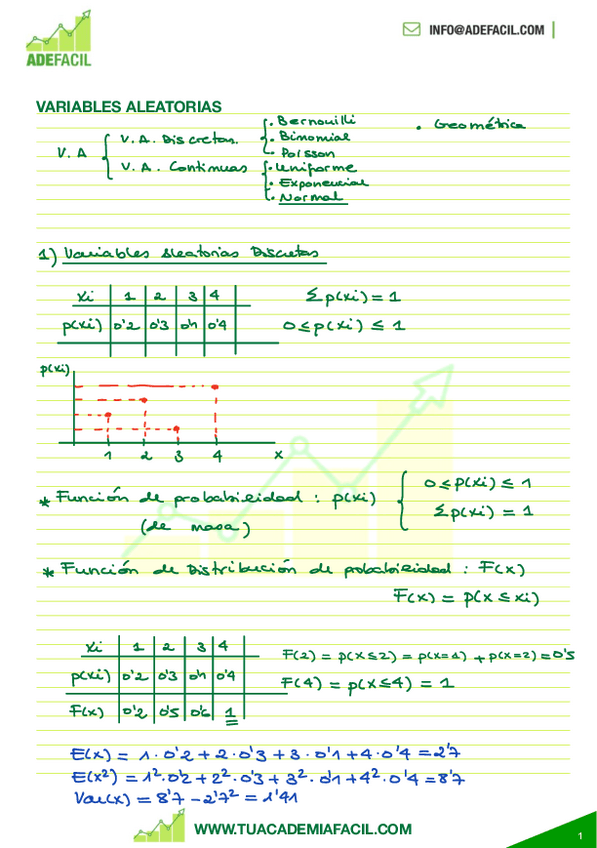 INFO@ADEFACIL.COM
ADEFACIL
VARIABLES ALEATORIAS
V.A { V.A. Discretas. { · Bernouilli · Binomial · Poisson
V.A. Continuas { · Uniforme · Exponencial · Normal
· Geométrica
1) Variables Aleatorias Discretas
xi 1 2 3 4
p(xi) 0'2 0'3 0'1 0'4
Σp(xi) = 1
0 ≤ p(xi) ≤ 1
p(xi)
1 2 3 4 x
* Función de probabilidad : p(xi) { 0 ≤ p(xi) ≤ 1
(de masa) Σp(xi) = 1
* Función de Distribución de probabilidad : F(x)
F(x) = p(x ≤ xi)
xi 1 2 3 4
p(xi) 0'2 0'3 0'1 0'4
F(x) 0'2 0'5 0'6 1
F(2) = p(x≤2) = p(x=1) + p(x=2) = 0'5
F(4) = p(x≤4) = 1
E(x) = 1·0'2 + 2·0'3 + 3·0'1 + 4·0'4 = 2'7
E(x²) = 1²·0'2 + 2²·0'3 + 3²·0'1 + 4²·0'4 = 8'7
Var(x) = 8'7 - 2'7² = 1'41
WWW.TUACADEMIAFACIL.COM
1